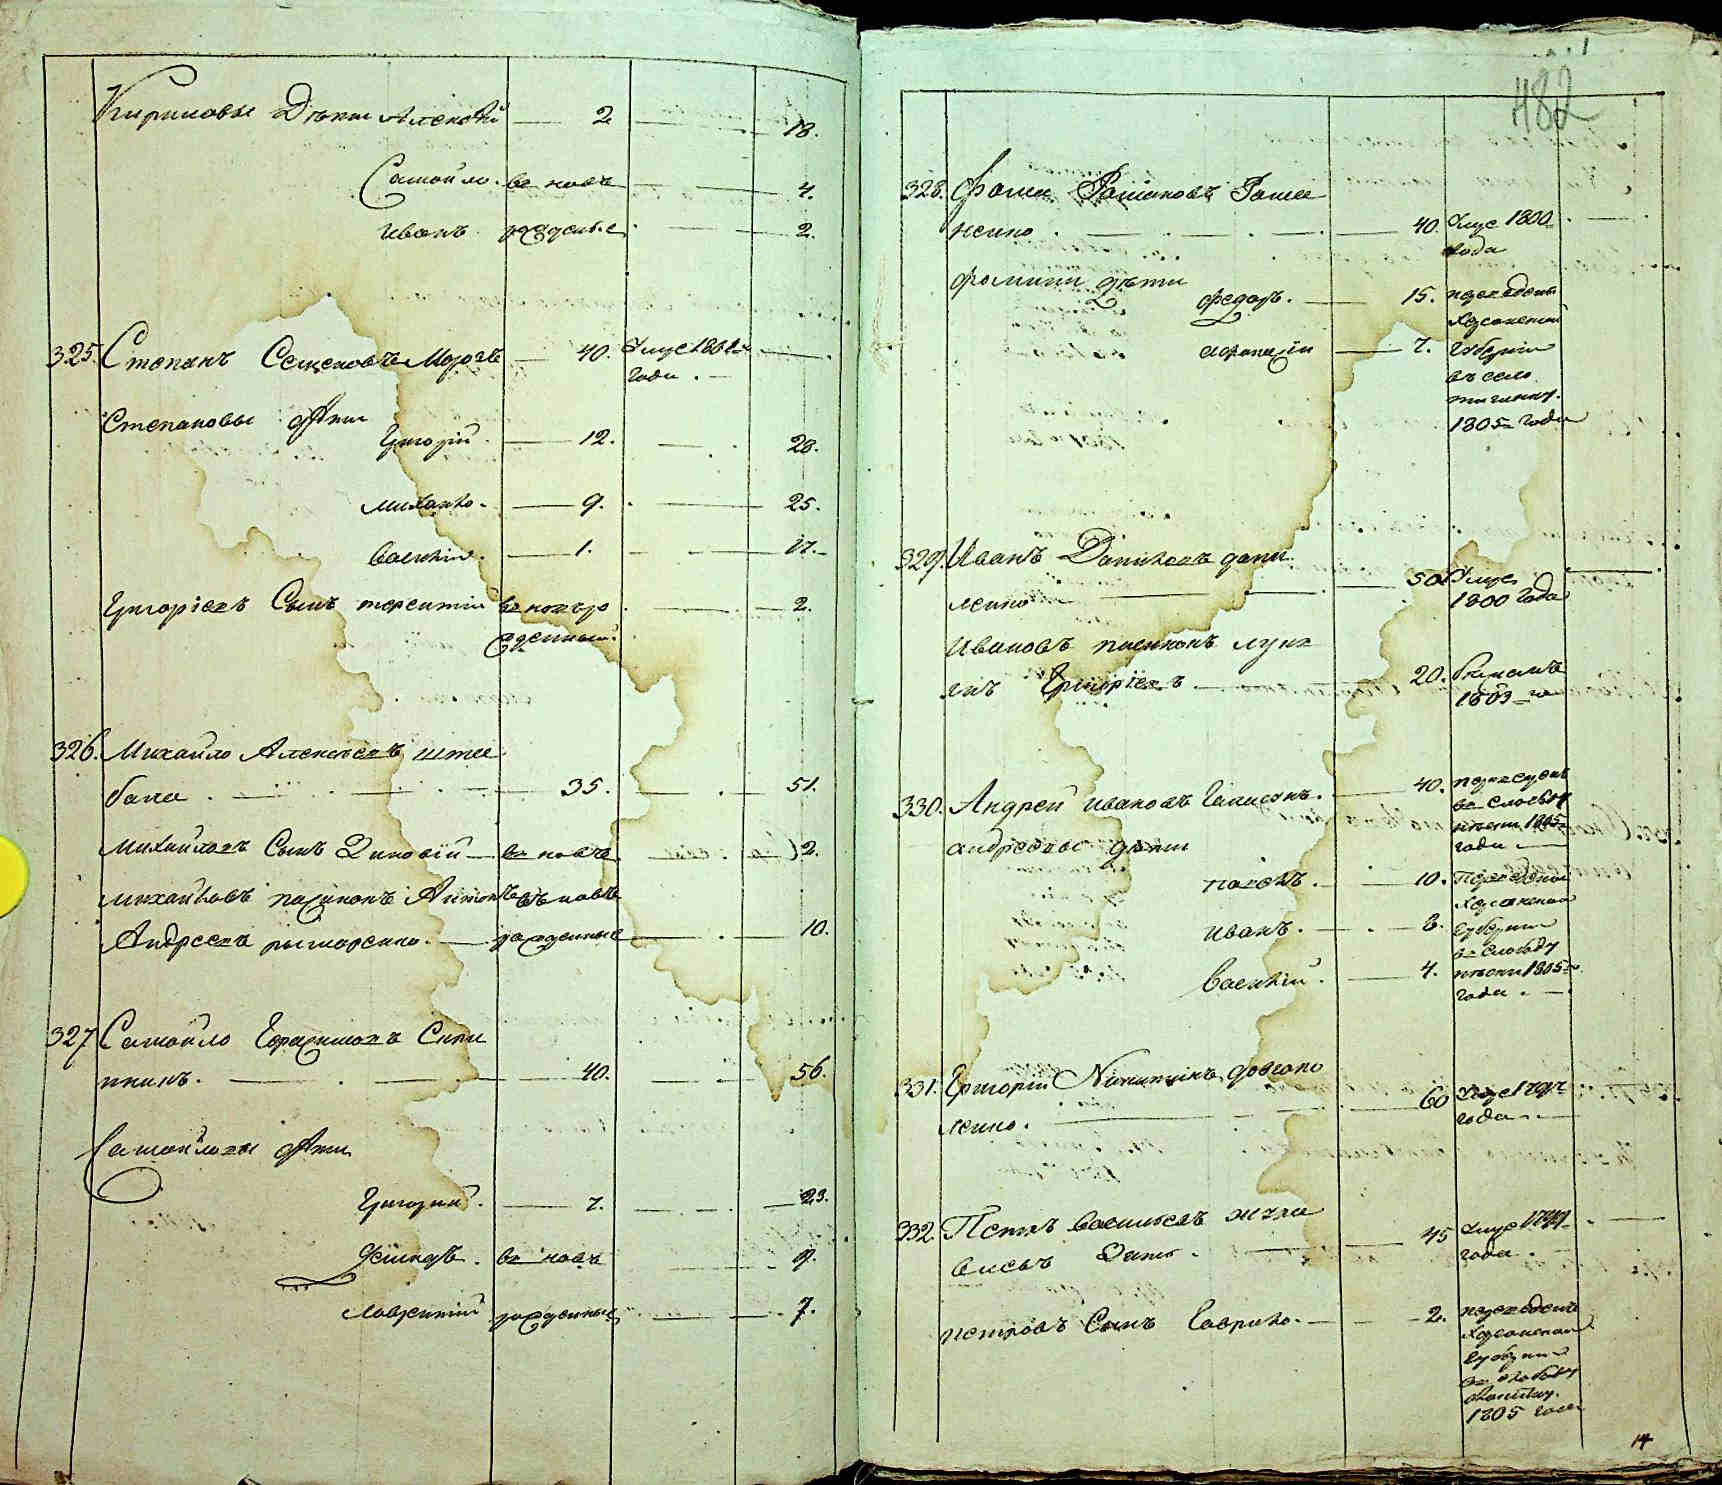 Кириловы Дѣти Алексѣй — 2 — 18.
Самойло. въ новѣ — 4.
Иванъ. рожденые — 2.
325. Степанъ Семеновъ Морозъ — 40. Умре 1801
года.
Степановы дѣти
Григорій — 12. — 28.
Михайло — 9. — 25.
Василій — 1. — 17.
Григорьевъ Сынъ терентій въ новѣ ро — 2.
жденный.
326. Михайло Алексѣевъ Шта
бана — 35. — 51.
Михайловъ Сынъ Зиновій — въ новѣ — 2.
Михайловъ пасинокъ Антонъ въ новѣ
Андреевъ — рожденные — 10.
327. Самойло Ефрасимовъ Скри
пникъ. — 40. — 56.
Самойловы дѣти
Григорий. — 7. — 23.
Ѳеодоръ. въ новѣ — 9.
Лаврентій рожденные — 7.
482
328. Фома Романовъ Рома
ненко — 40. Умре 1800
года
Фомины дѣти
Федоръ. — 15. переведены
Херсонской
Афанасій — 7. Губерніи
въ село
1805 года
329. Иванъ Даниловъ дани
ленко — 50. Умре
1800 года
Ивановъ пасинокъ Лукя
нъ Григорьевъ — 20.
1803 го
330. Андрей Ивановъ — 40.
въ слободу
1805
года
Андреевы дѣти
Павелъ. — 10. Переведены
Херсонской
Иванъ. — 8. Губерніи
въ слободу
Василій. — 4. 1805
года.
331. Григорій Никитинъ довгопо
ленко. — 60. Умре
года.
332. Петръ Васильевъ
45. Умре
года.
Петровъ Сынъ Гаврило. — 2. переведенъ
Херсонской
Губерніи
въ слободу
1805 года
14